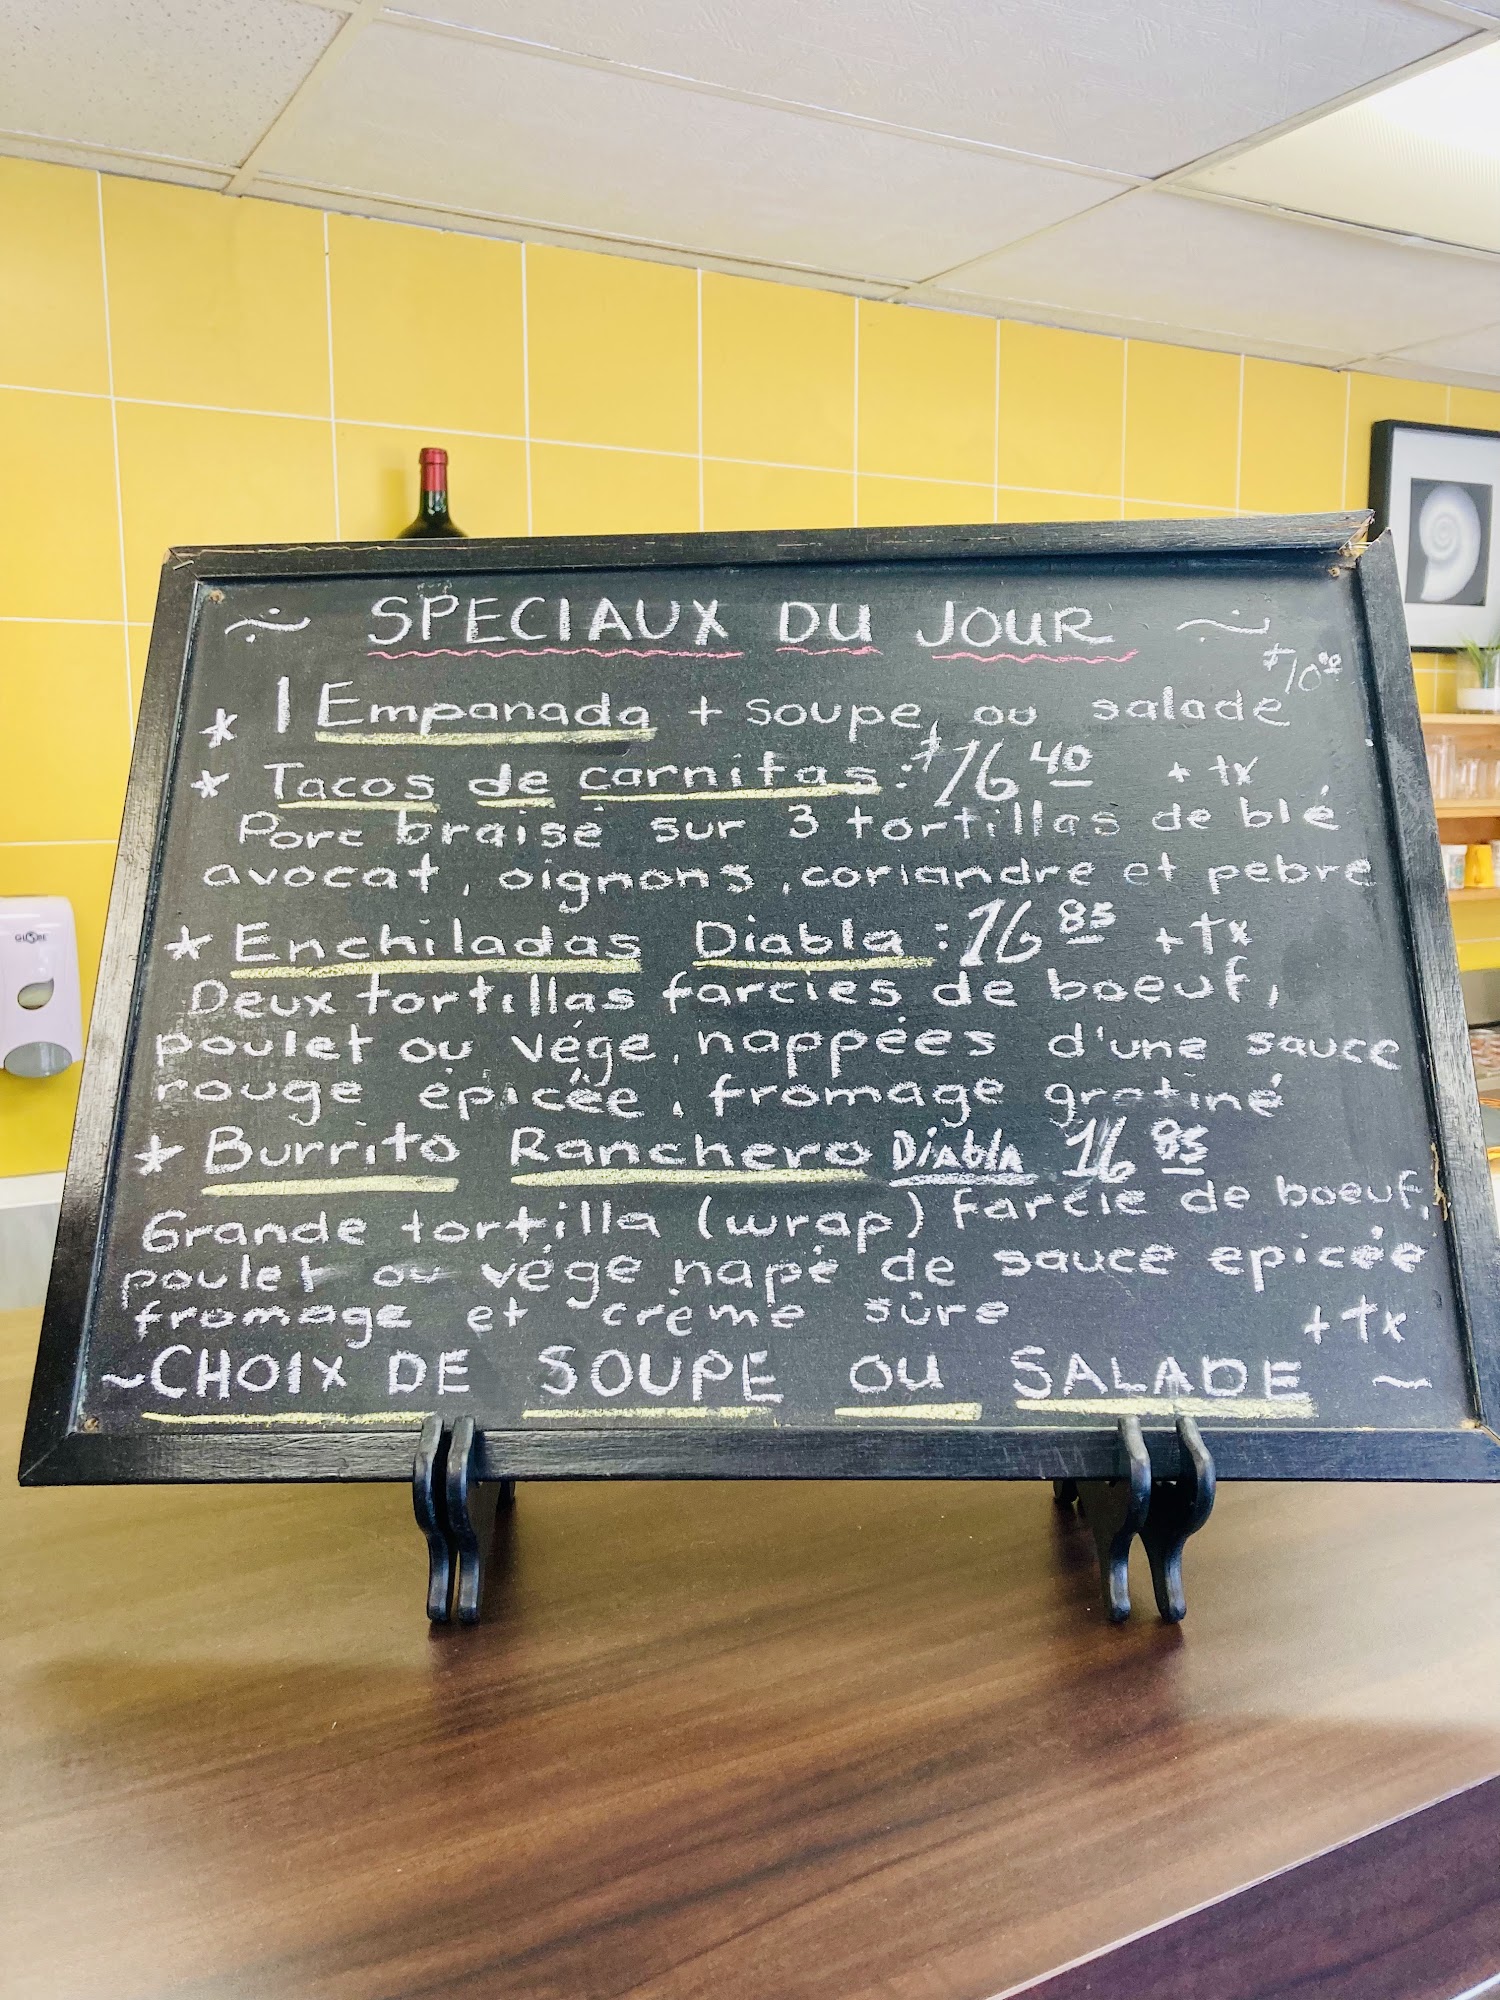 ~ SPECIAUX DU JOUR ~
* 1 Empanada + soupe ou salade $10.00
* Tacos de carnitas : $16 40 + tx
Porc braisé sur 3 tortillas de blé
avocat, oignons, coriandre et pebre
* Enchiladas Diabla : 16 85 + tx
Deux tortillas farcies de boeuf,
poulet ou vége, nappées d'une sauce
rouge épicée, fromage gratiné
* Burrito Ranchero Diabla 16 85
Grande tortilla (wrap) farcie de boeuf,
poulet ou vége napé de sauce epicée
fromage et crème sûre + tx
~ CHOIX DE SOUPE OU SALADE ~
GLOBE